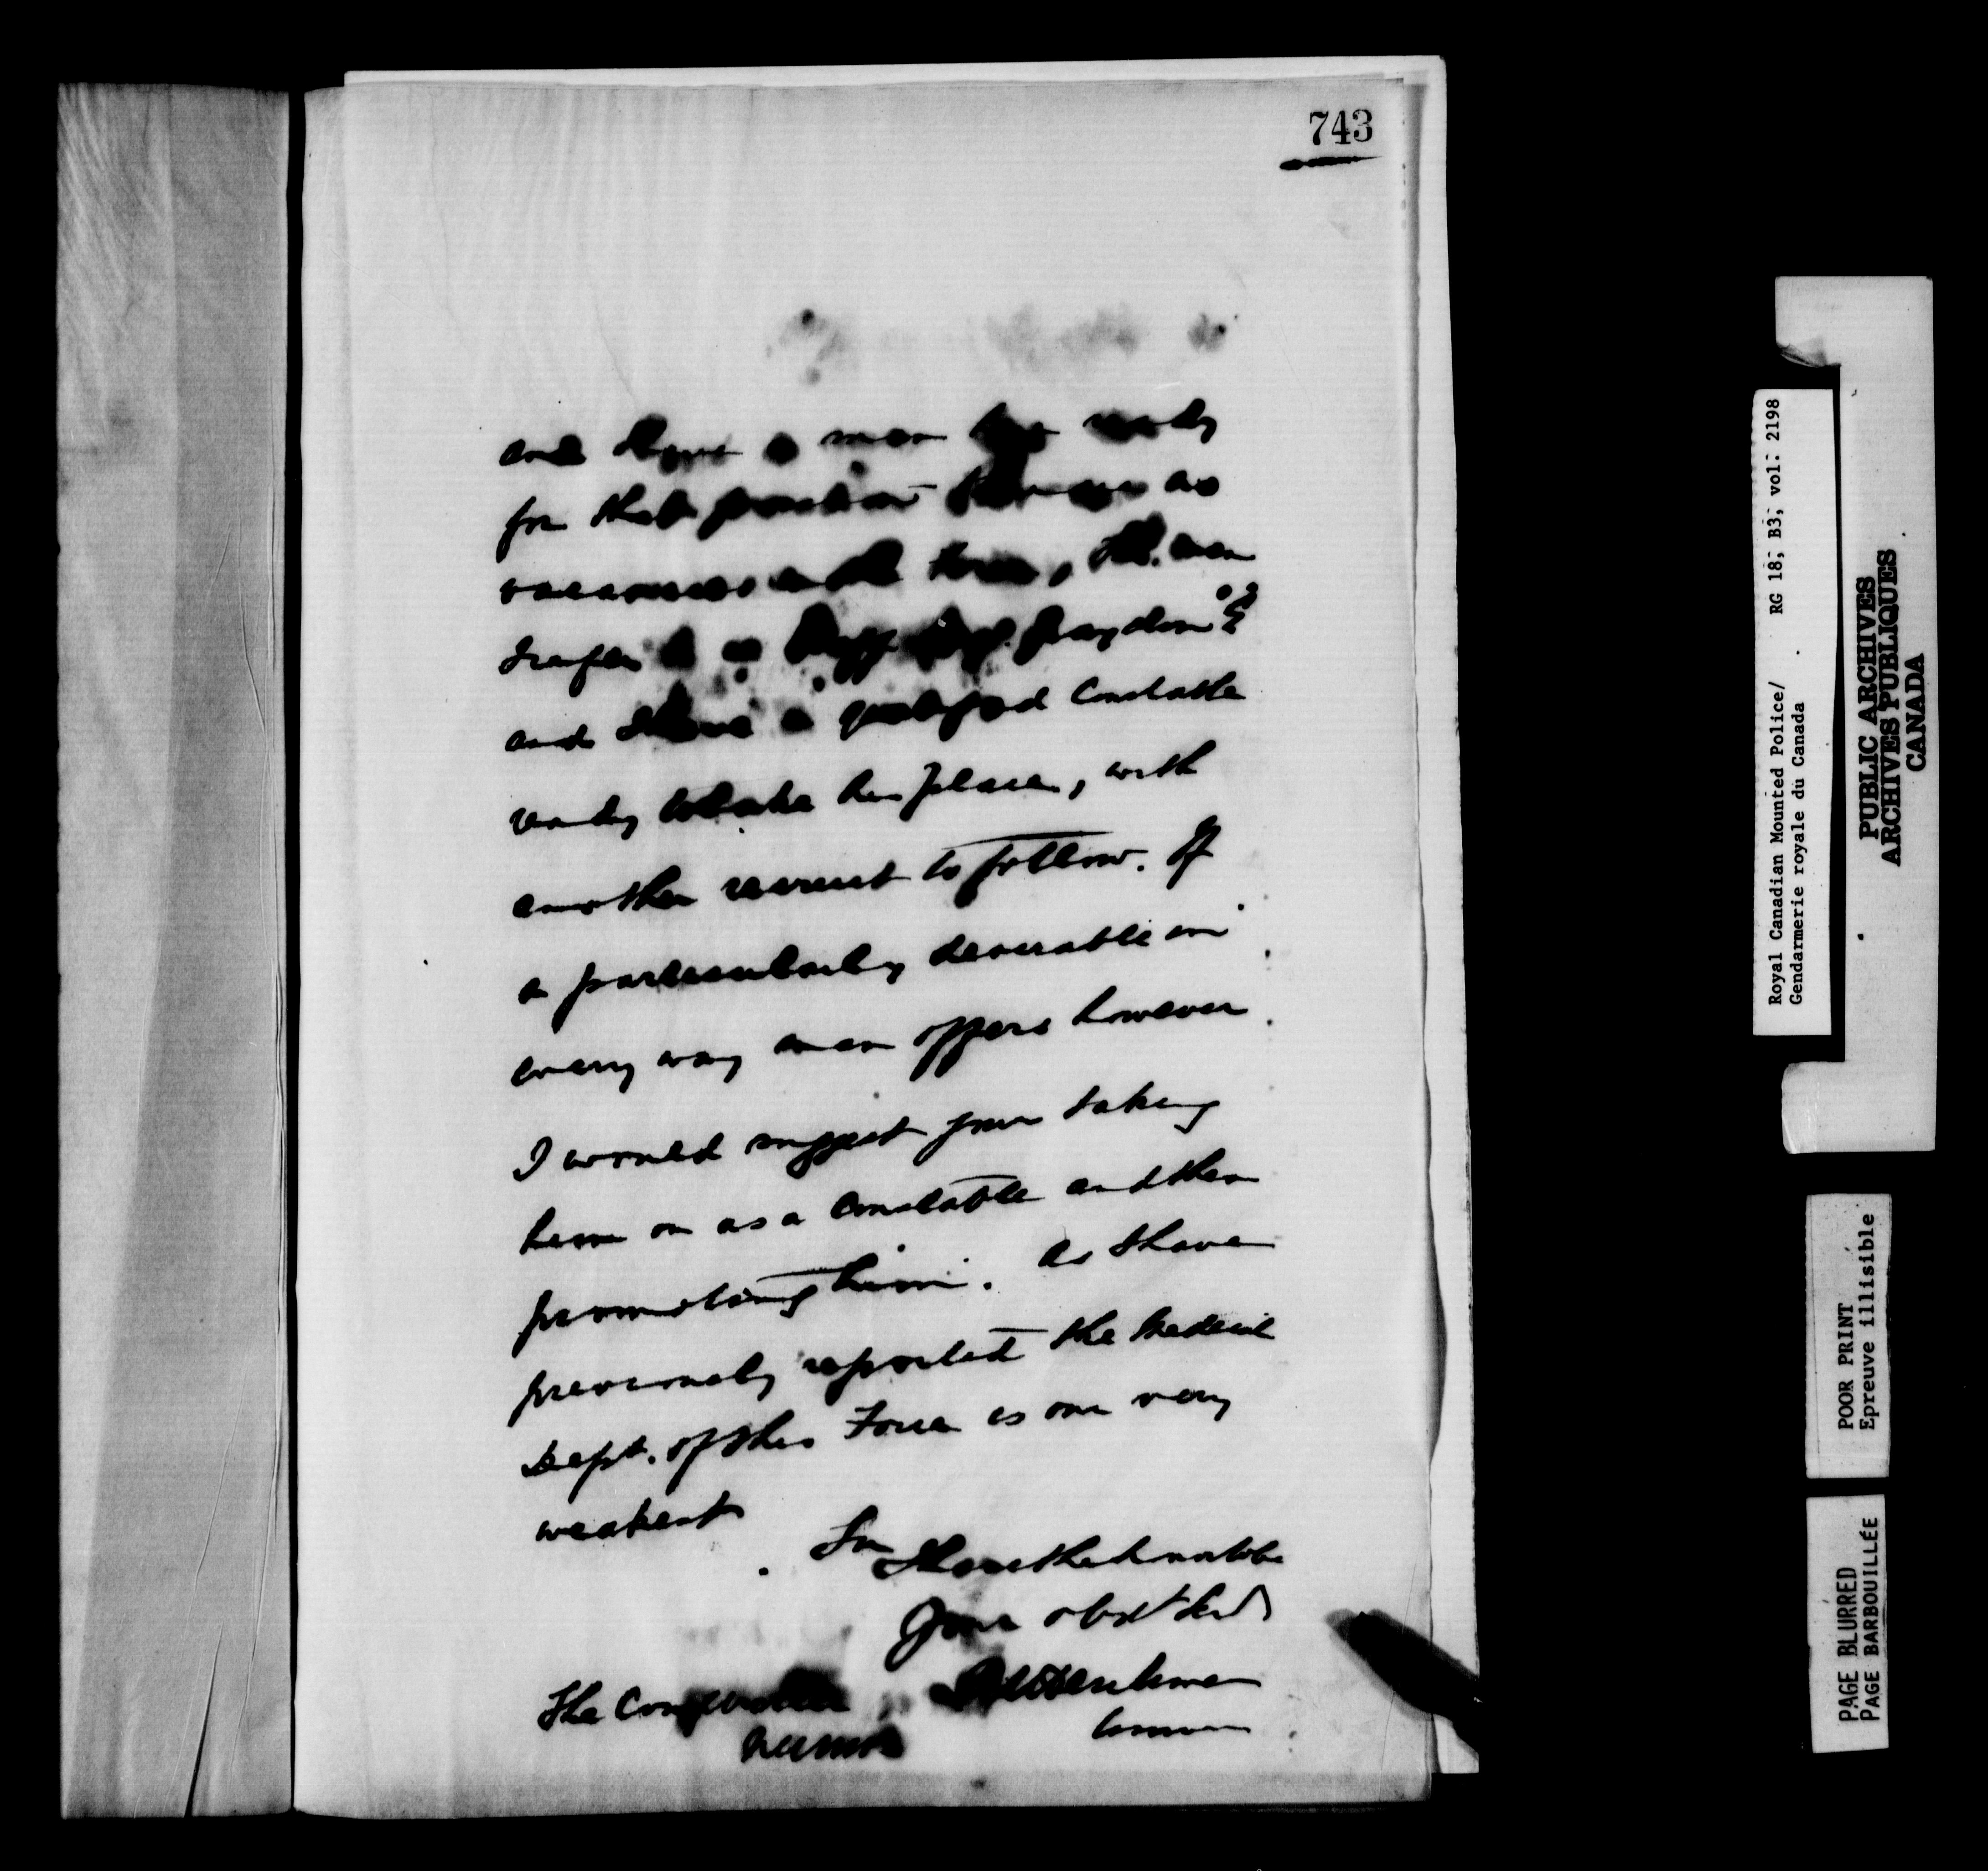 743
and I have a man now ready
for that position there are as
vacancies in the Force, the man
is a Staff Sergt.
and I have a qualified Constable
ready to take his place, with
another recruit to follow. If
a particularly desirable in
every way man offers however
I would suggest your taking
him on as a Constable and then
promoting him. As I have
previously reported the Medical
Dept. of this Force is our very
weakest
Sir
I have the honor to be
Your obedt Servt
The Comptroller
Commr
Royal Canadian Mounted Police/ RG 18; B3; vol: 2198
Gendarmerie royale du Canada
PUBLIC ARCHIVES
ARCHIVES PUBLIQUES
CANADA
POOR PRINT
Epreuve illisible
PAGE BLURRED
PAGE BARBOUILLÉE